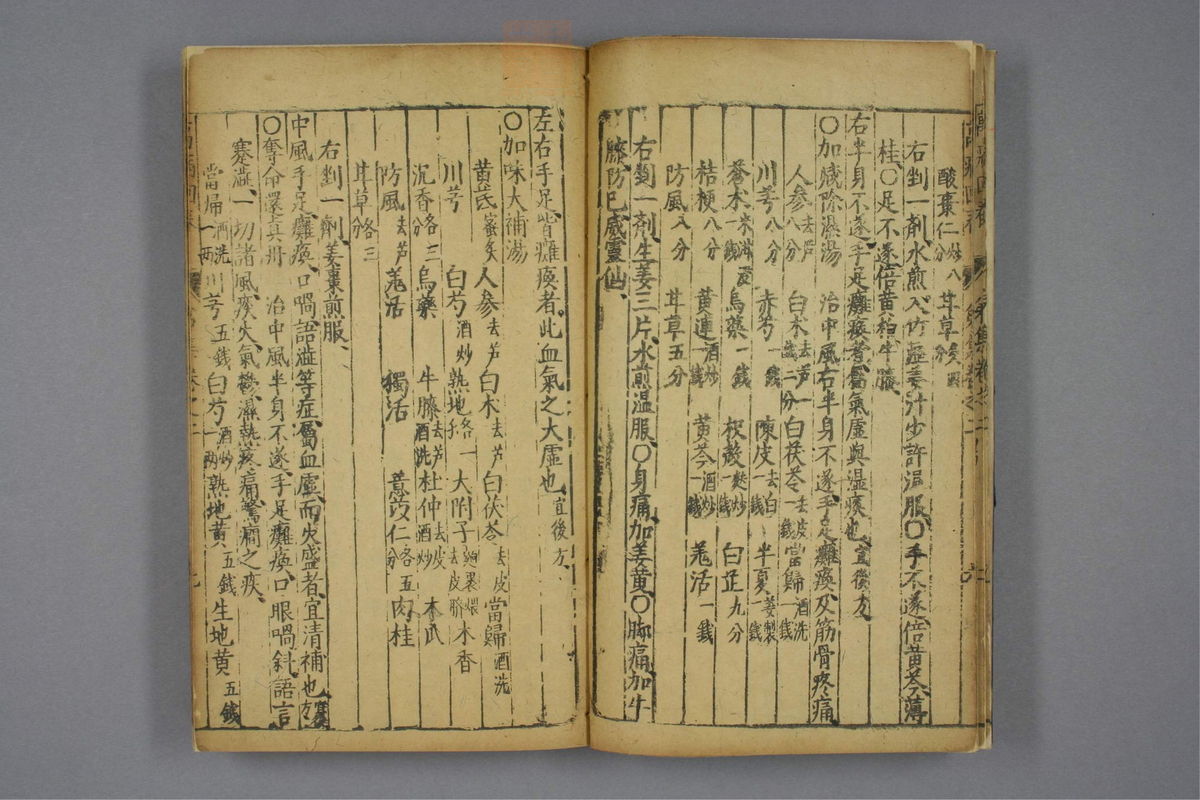 酸棗仁炒八分 甘草炙四分
右剉一劑水煎入竹瀝姜汁少許温服〇手不遂倍黄芩薄
桂〇足不遂倍黄柏牛膝
右半身不遂手足癱瘓者屬氣虚與濕痰也宜後方
〇加减除濕湯 治中風右半身不遂手足癱瘓及筋骨疼痛
人參去芦八分 白朮去芦一錢二分 白茯苓去皮一錢 當歸酒洗一錢
川芎八分 赤芍一錢 陳皮去白一錢 半夏姜製一錢
蒼朮米泔浸 烏藥一錢 枳殼麩炒一錢 白芷九分
桔梗八分 黄連酒炒一錢 黄芩酒炒一錢 羌活一錢
防風八分 甘草五分
右剉一劑生姜三片水煎温服〇身痛加姜黄〇脚痛加牛
膝防已威靈仙
左右手足皆癱瘓者此血氣之大虚也宜後方
〇加味大補湯
黄芪蜜炙 人參去芦 白朮去芦 白茯苓去皮 當歸酒洗
川芎 白芍酒炒 熟地各一 大附子麵裹煨去皮臍 木香
沉香各三 烏藥 牛膝去芦酒洗 杜仲去皮酒炒 木瓜
防風去芦 羌活 獨活 薏苡仁各五分 肉桂
甘草各三分
右剉一劑姜棗煎服
中風手足癱瘓口喎語澁等症屬血虚而火盛者宜清補也
〇奪命還真丹 治中風半身不遂手足癱瘓口眼喎斜語言
蹇澁一切諸風痰火氣鬱濕熱疼痛篤痼之疾
當歸酒洗一兩 川芎五錢 白芍酒炒一兩 熟地黄五錢 生地黄五錢